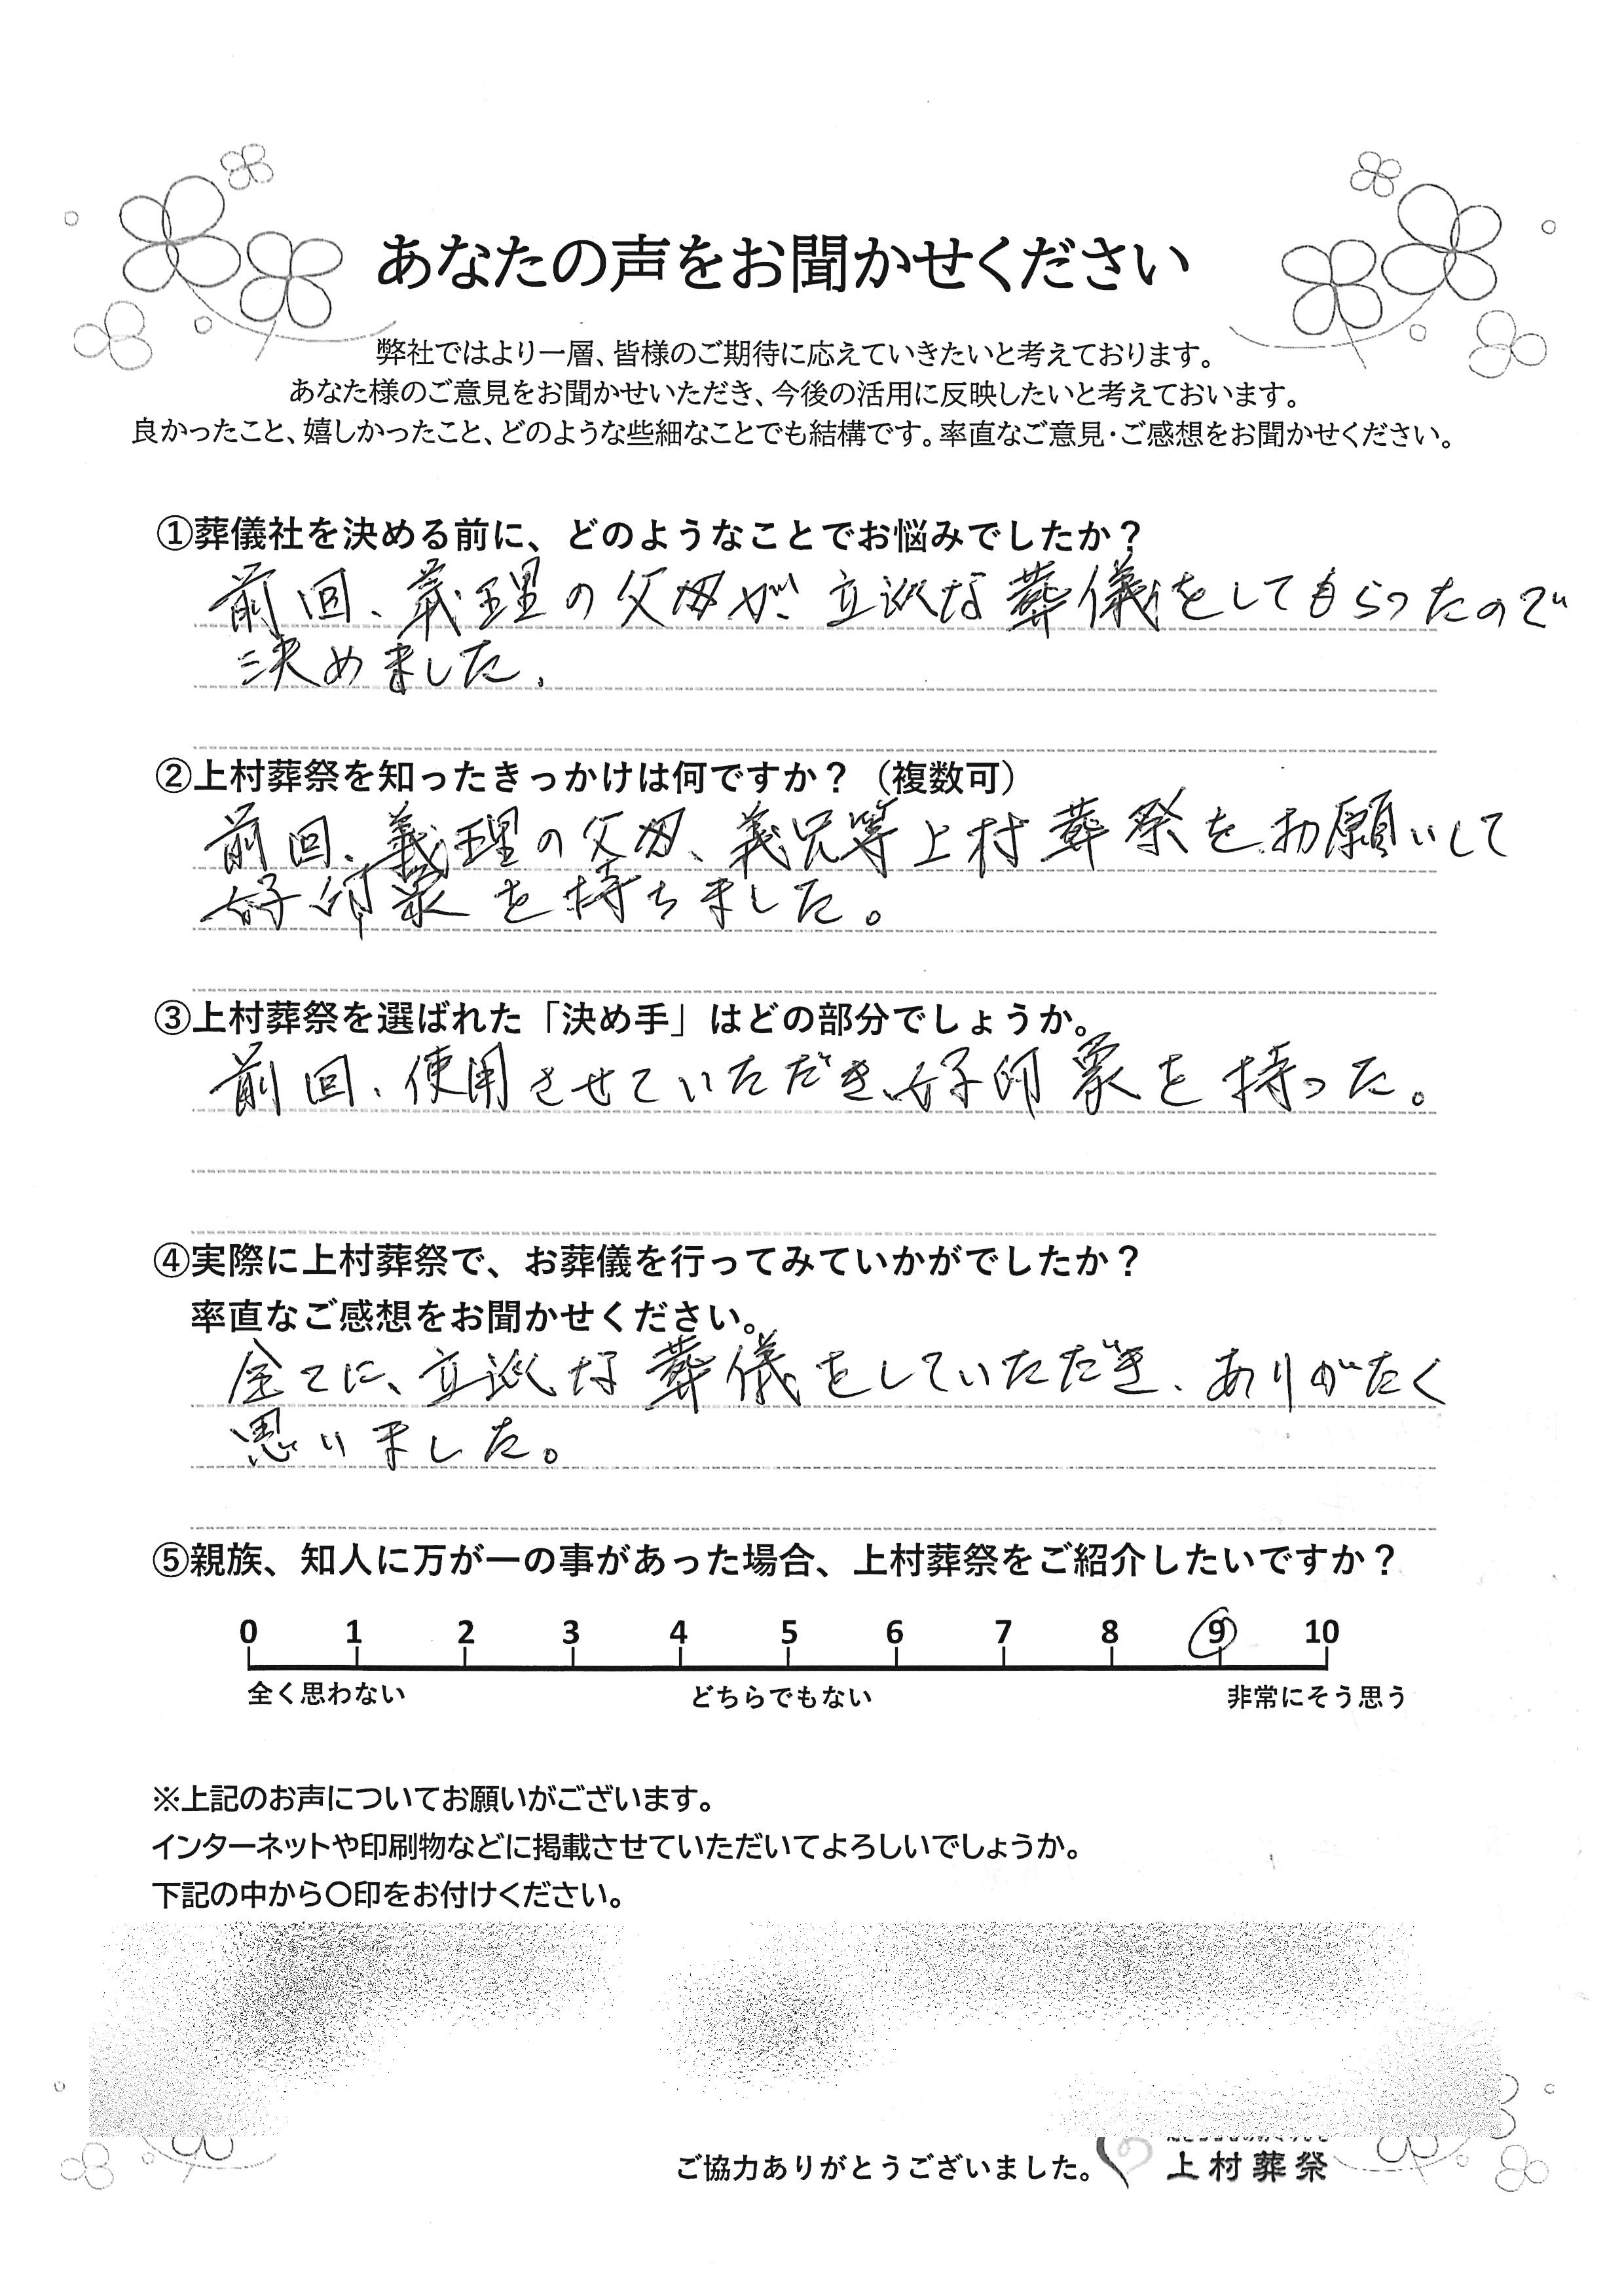 あなたの声をお聞かせください
弊社ではより一層、皆様のご期待に応えていきたいと考えております。
あなた様のご意見をお聞かせいただき、今後の活用に反映したいと考えておいます。
良かったこと、嬉しかったこと、どのような些細なことでも結構です。率直なご意見・ご感想をお聞かせください。
①葬儀社を決める前に、どのようなことでお悩みでしたか？
前回、義理の父母が、立派な葬儀をしてもらったので
決めました。
②上村葬祭を知ったきっかけは何ですか？（複数可）
前回、義理の父母、義兄等上村葬祭をお願いして
好印象を持ちました。
③上村葬祭を選ばれた「決め手」はどの部分でしょうか。
前回、使用させていただき、好印象を持った。
④実際に上村葬祭で、お葬儀を行ってみていかがでしたか？
率直なご感想をお聞かせください。
全てに、立派な葬儀をしていただき、ありがたく
思いました。
⑤親族、知人に万が一の事があった場合、上村葬祭をご紹介したいですか？
0 1 2 3 4 5 6 7 8 9 10
全く思わない どちらでもない 非常にそう思う
※上記のお声についてお願いがございます。
インターネットや印刷物などに掲載させていただいてよろしいでしょうか。
下記の中から〇印をお付けください。
ご協力ありがとうございました。 上村葬祭